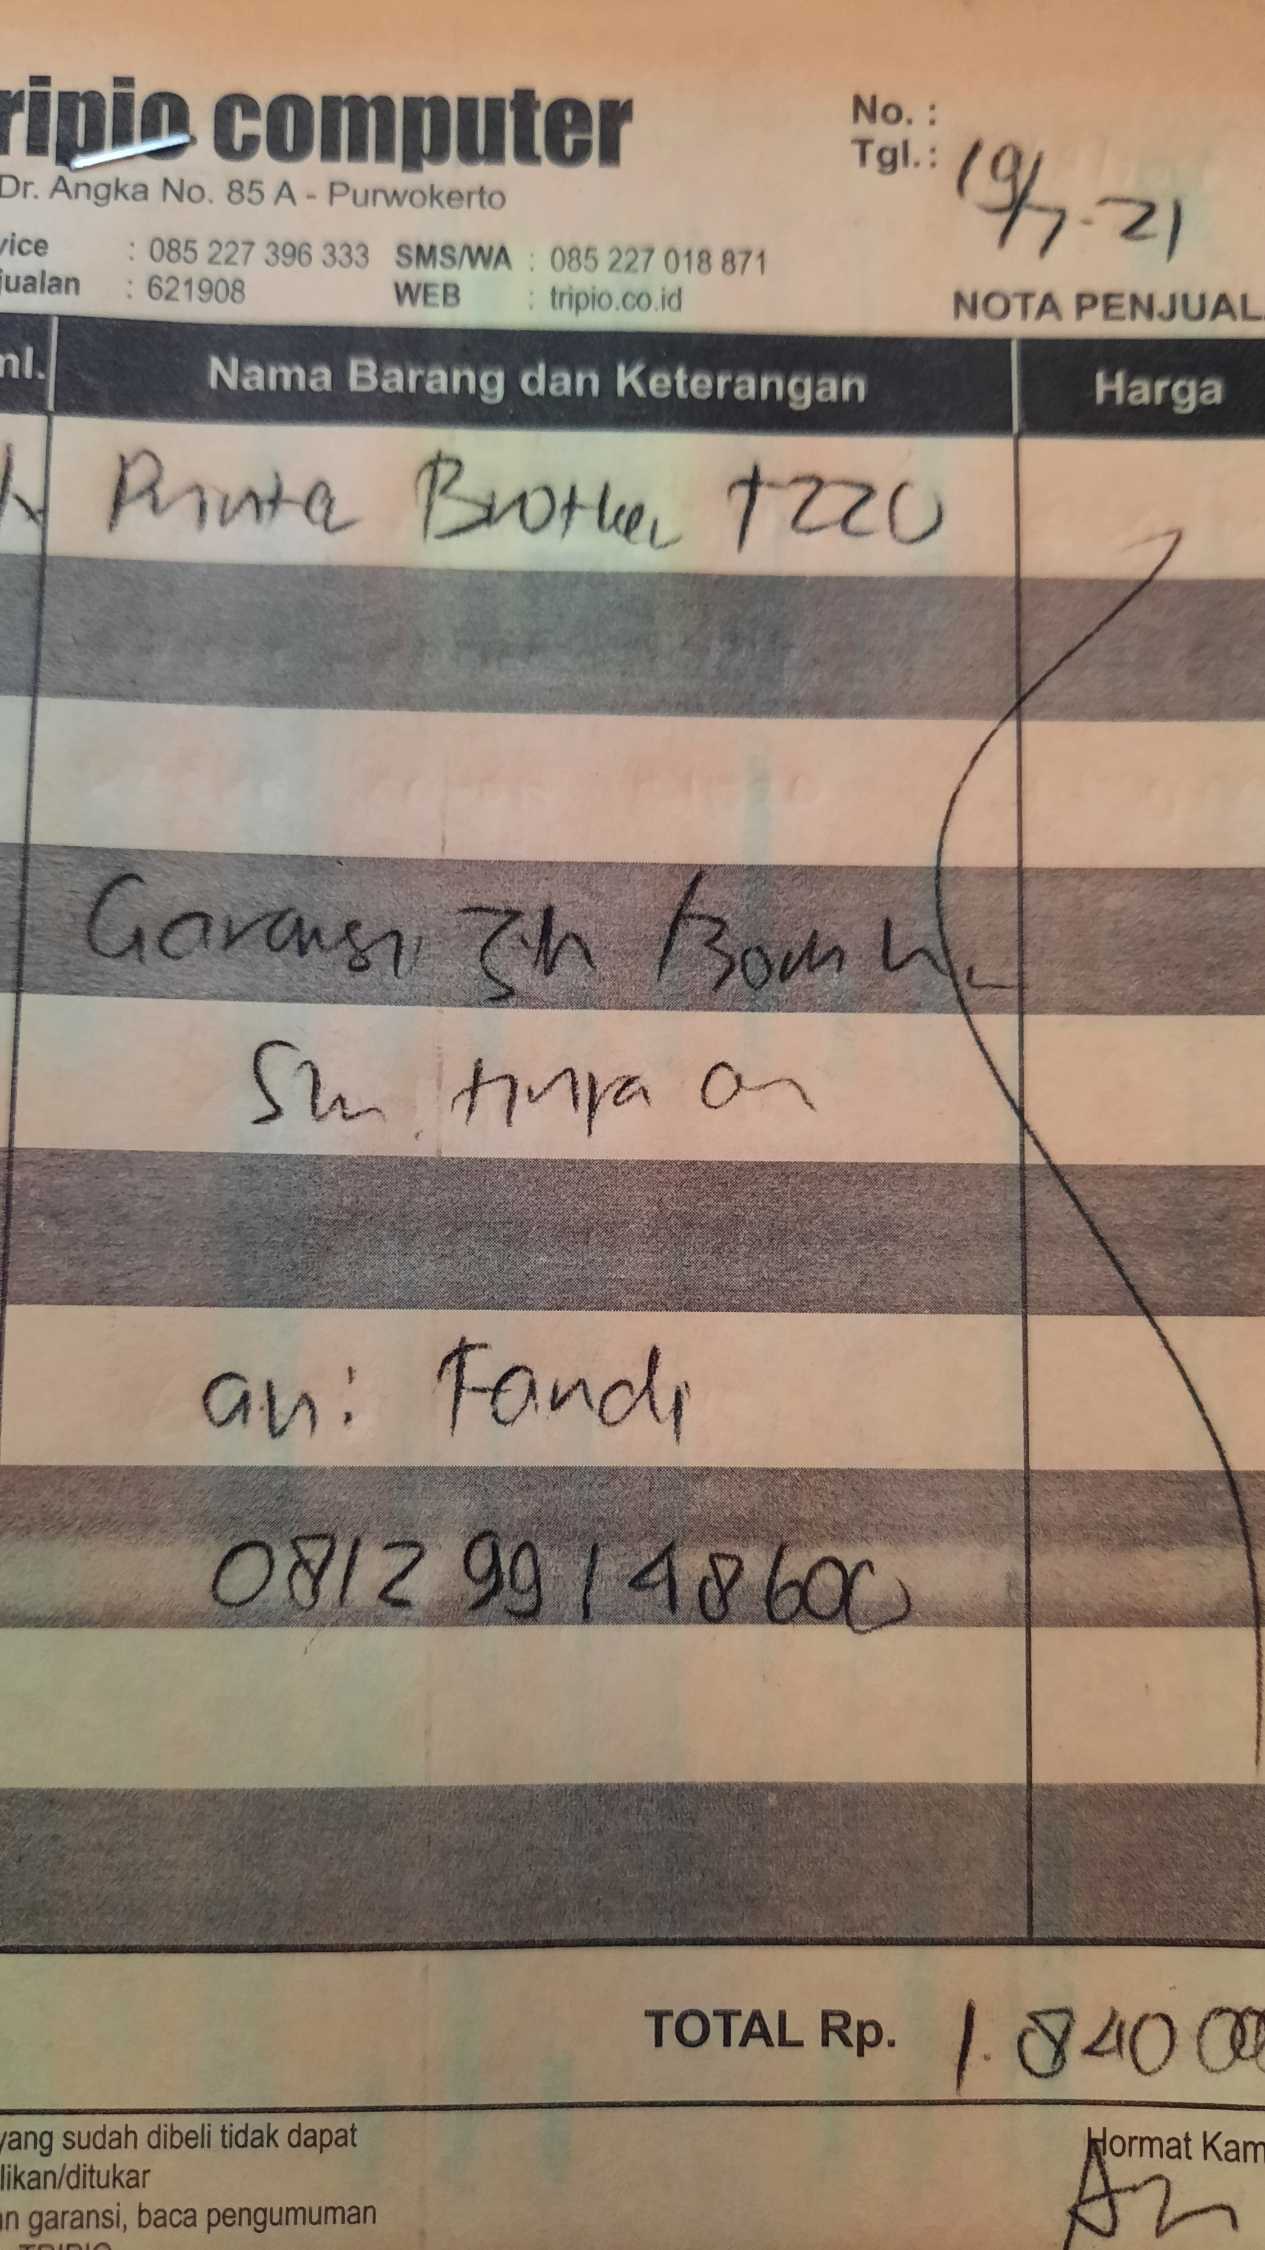 ripio computer
Dr. Angka No. 85 A - Purwokerto
vice : 085 227 396 333 SMS/WA : 085 227 018 871
jualan : 621908 WEB : tripio.co.id
No. :
Tgl. : 19/7-21
NOTA PENJUAL
ml. Nama Barang dan Keterangan Harga
1 Printer Brother T220
Garansi 3th
an: Fandi
0812 99 1 48600
TOTAL Rp. 1.840 000
yang sudah dibeli tidak dapat
likan/ditukar
an garansi, baca pengumuman
TRIPIO
Hormat Kam